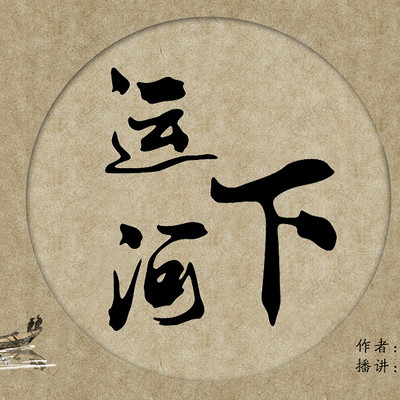 运河
下
作者：
播讲：